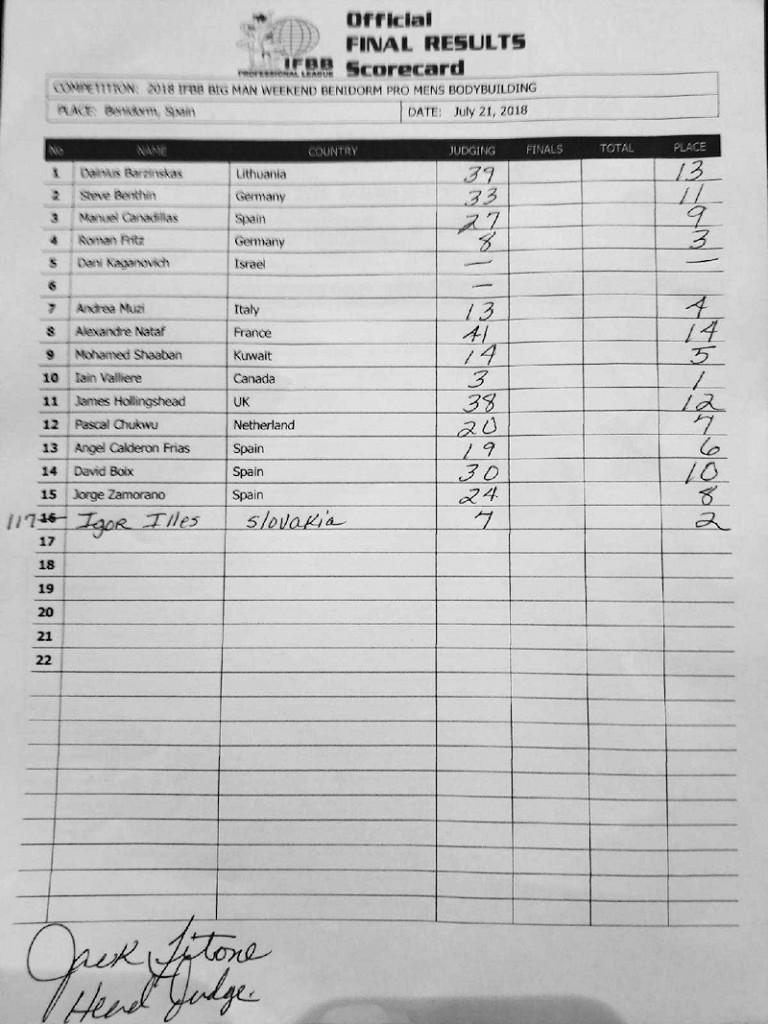 Official
FINAL RESULTS
Scorecard
IFBB
PROFESSIONAL LEAGUE
COMPETITION: 2018 IFBB BIG MAN WEEKEND BENIDORM PRO MENS BODYBUILDING
PLACE: Benidorm, Spain DATE: July 21, 2018
No NAME COUNTRY JUDGING FINALS TOTAL PLACE
1 Dainius Barzinskas Lithuania 39 13
2 Steve Benthin Germany 33 11
3 Manuel Canadillas Spain 27 9
4 Roman Fritz Germany 8 3
5 Dani Kaganovich Israel — —
6 —
7 Andrea Muzi Italy 13 4
8 Alexandre Nataf France 41 14
9 Mohamed Shaaban Kuwait 14 5
10 Iain Valliere Canada 3 1
11 James Hollingshead UK 38 12
12 Pascal Chukwu Netherland 20 7
13 Angel Calderon Frias Spain 19 6
14 David Boix Spain 30 10
15 Jorge Zamorano Spain 24 8
117 16 Igor Illes Slovakia 7 2
17
18
19
20
21
22
Jack Titone
Head Judge.